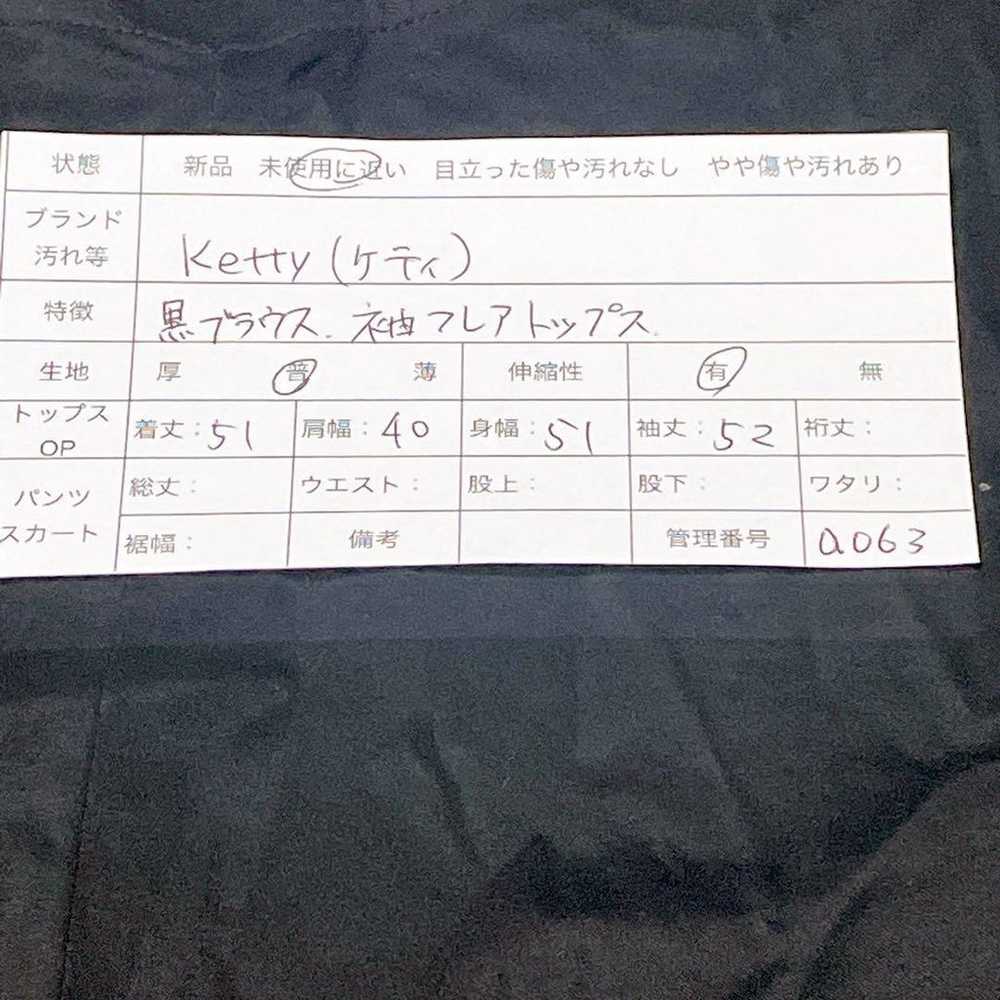 状態 新品 未使用に近い 目立った傷や汚れなし やや傷や汚れあり
ブランド
汚れ等 Ketty (ケティ)
特徴 黒ブラウス. 袖フレアトップス.
生地 厚 普 薄 伸縮性 有 無
トップス
OP 着丈:51 肩幅:40 身幅:51 袖丈:52 裄丈:
パンツ
スカート 総丈: ウエスト: 股上: 股下: ワタリ:
裾幅: 備考 管理番号 a063